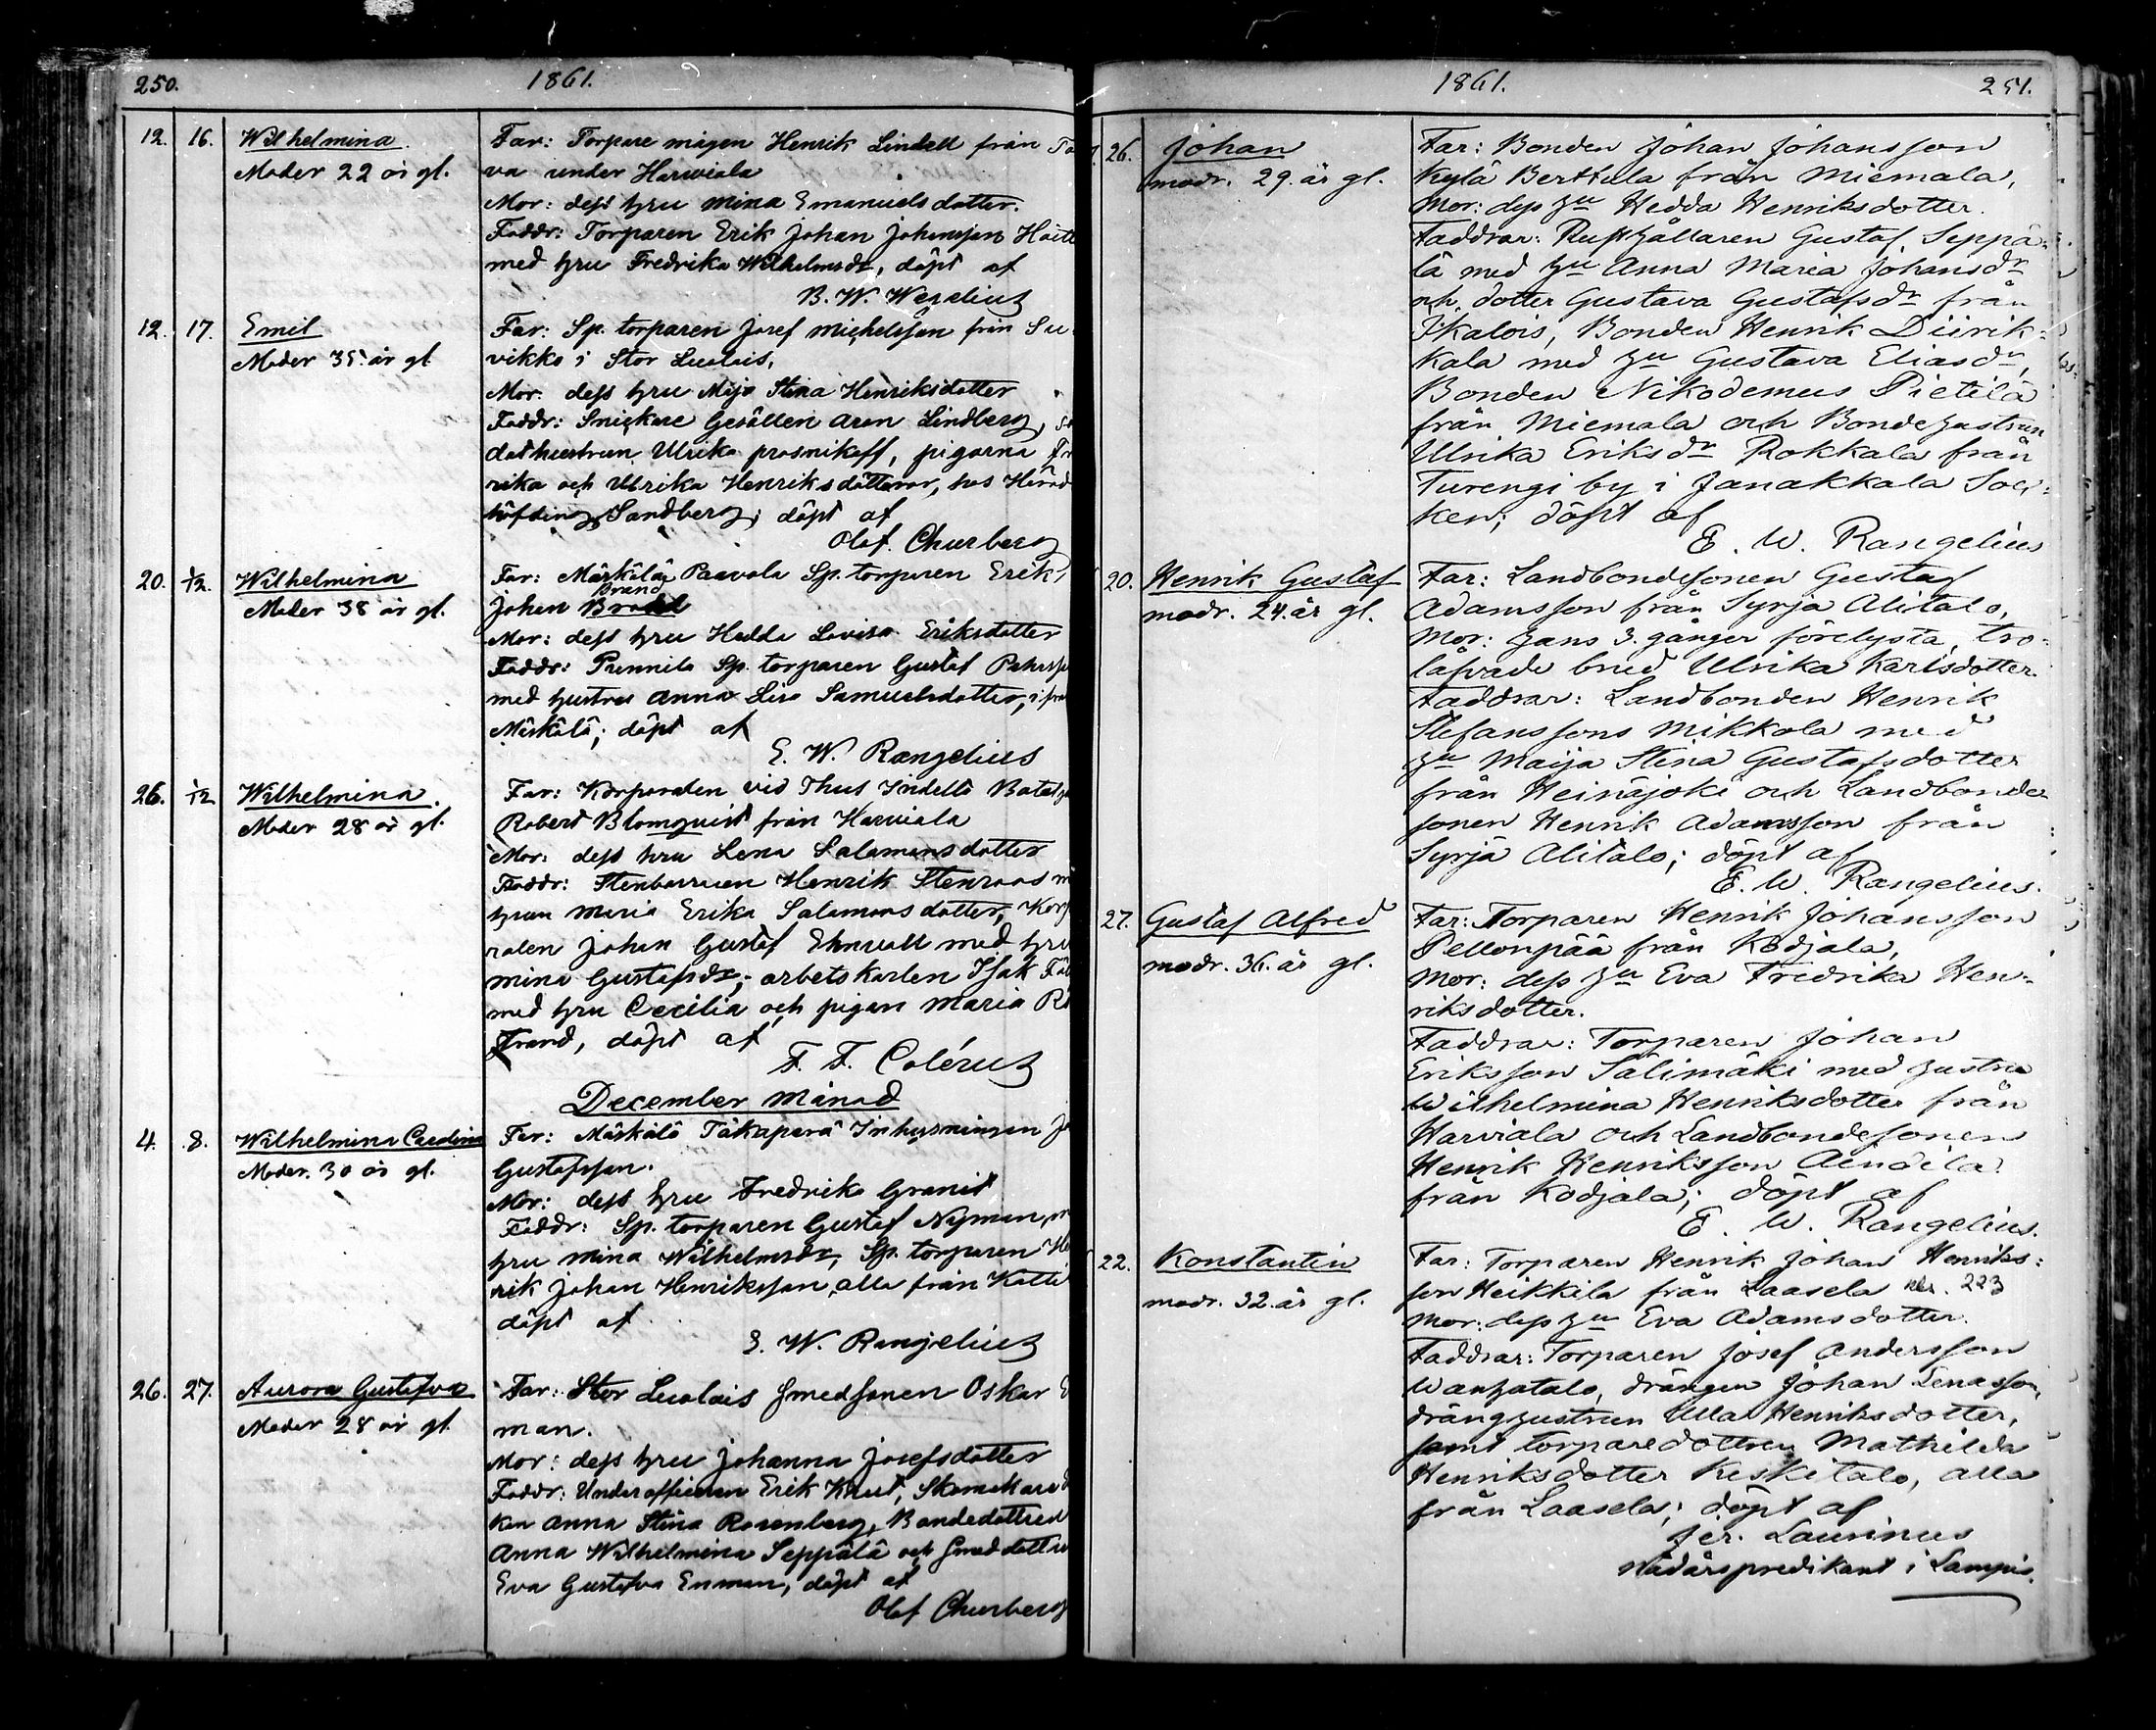 250. 1861.
12. 16. Wilhelmina. Far: Torpare mågen Henrik Lindell från
Moder 22 år gl. va under Harwiala
Mor: dess hru Mina Emanuelsdotter.
Faddr: Torparen Erik Johan Johansson
med hru Fredrika Wilhelmsdr, döpt af
12. 17. Emil Far: Sp. torparen Josef Michelsson från Su
Moder 35 år gl vikko i Stor Luolais,
Mor: dess hru Maja Stina Henriksdotter
Faddr: Snickare Gesällen Aron Lindberg,
dathustrun Ulrika prasnikoff, pigorna Fr
rika och Ulrika Henriksdöttrar, hos Härad
höfding Sandberg; döpt af
Olof. Churberg
20. 1/12. Wilhelmina Far: Märkälä Paavola Sp. torparen Erik
Moder 38 år gl. Johan Brand
Mor: dess hru Hedda Lovisa Eriksdotter
Faddr: Prennilä Sp. torparen Gustaf
med hustru Anna Lisa Samuelsdotter,
Märkälä; döpt af
E. W. Rangelius
26. 1/12 Wilhelmina. Far: Korporalen vid Thus Indelta Batalj
Moder 28 år gl. Robert Blomqvist från Harwiala
Mor: dess hru Lena Salomonsdotter
Faddr: Henrik Stenroos m
hrun Maria Erika Salomonsdotter, Korp
ralen Johan Gustaf Ehnvall med hru
Mina Gustafsdr, arbetskarlen Isak
med hru Cecilia och pigan Maria
strand, döpt af
F. F. Colérus
December månad
4. 8. Wilhelmina Carolina Far: Märkälä Takaperä Inhysmågen
Moder. 30 år gl. Gustafsson.
Mor: dess hru Fredrika Granit
Faddr: Sp. torparen Gustaf Nyman, m
hru Mina Wilhelmsdr, Sp. torparen He
rik Johan Henriksson, alla från Katti
döpt af
E. W. Rangelius
26. 27. Aurora Gustafva Far: Stor Luolais smedsonen Oskar E
Moder 28 år gl. man.
Mor: dess hru Johanna Josefsdotter
Faddr: Underofficeren Erik Knut, Skomakare
kan Anna Stina Rosenberg, Bondedottren
Anna Wilhelmina Seppälä och smeddottren
Eva Gustafva Enman, döpt af
Olof Churberg
1861. 251.
26. Johan Far: Bonden Johan Johansson
modr. 29. år gl. Kylä Berttula från Miemala,
Mor: dess hu Hedda Henriksdotter.
Faddrar: Rusthållaren Gustaf Seppä-
lä med hu Anna Maria Johansdr
och dotter Gustava Gustafsdr från
Ikalois, Bonden Henrik Diirik-
kala med hu Gustava Eliasdr,
Bonden Nikodemus Pietilä
från Miemala och Bondehustrun
Ulrika Eriksdr Rokkala från
Turengi by i Janakkala Soc-
ken; döpt af
E. W. Rangelius
20. Henrik Gustaf Far: Landbondesonen Gustaf
modr. 24. år gl. Adamsson från Syrjä Alitalo,
Mor: hans 3. gånger förelysta, tro-
låfvade brud Ulrika Karlsdotter.
Faddrar: Landbonden Henrik
Stefanssons Mikkola med
hu Maija Stina Gustafsdotter
från Heinäjoki och Landbonde
sonen Henrik Adamsson från
Syrjä Alitalo; döpt af
E. W. Rangelius.
27. Gustaf Alfred Far: Torparen Henrik Johansson
modr. 36. år gl. Pellonpää från Kodjala,
Mor: dess hu Eva Fredrika Hen-
riksdotter.
Faddrar: Torparen Johan
Eriksson Salimäki med hustru
Wilhelmina Henriksdotter från
Harviala och Landbondesonen
Henrik Henriksson
från Kodjala; döpt af
E. W. Rangelius.
22. Konstantin Far: Torparen Henrik Johan Henriks:
modr. 32. år gl. son Heikkilä från Laasela 223
Mor: dess hu Eva Adamsdotter.
Faddrar: Torparen Josef Andersson
Wanhatalo, drängen Johan Lenasson,
dränghustrun Ulla Henriksdotter,
samt torparedottren Mathilda
Henriksdotter Keskitalo, alla
från Laasela; döpt af
Jer. Laurinus
Nådårspredikant i Lampis.